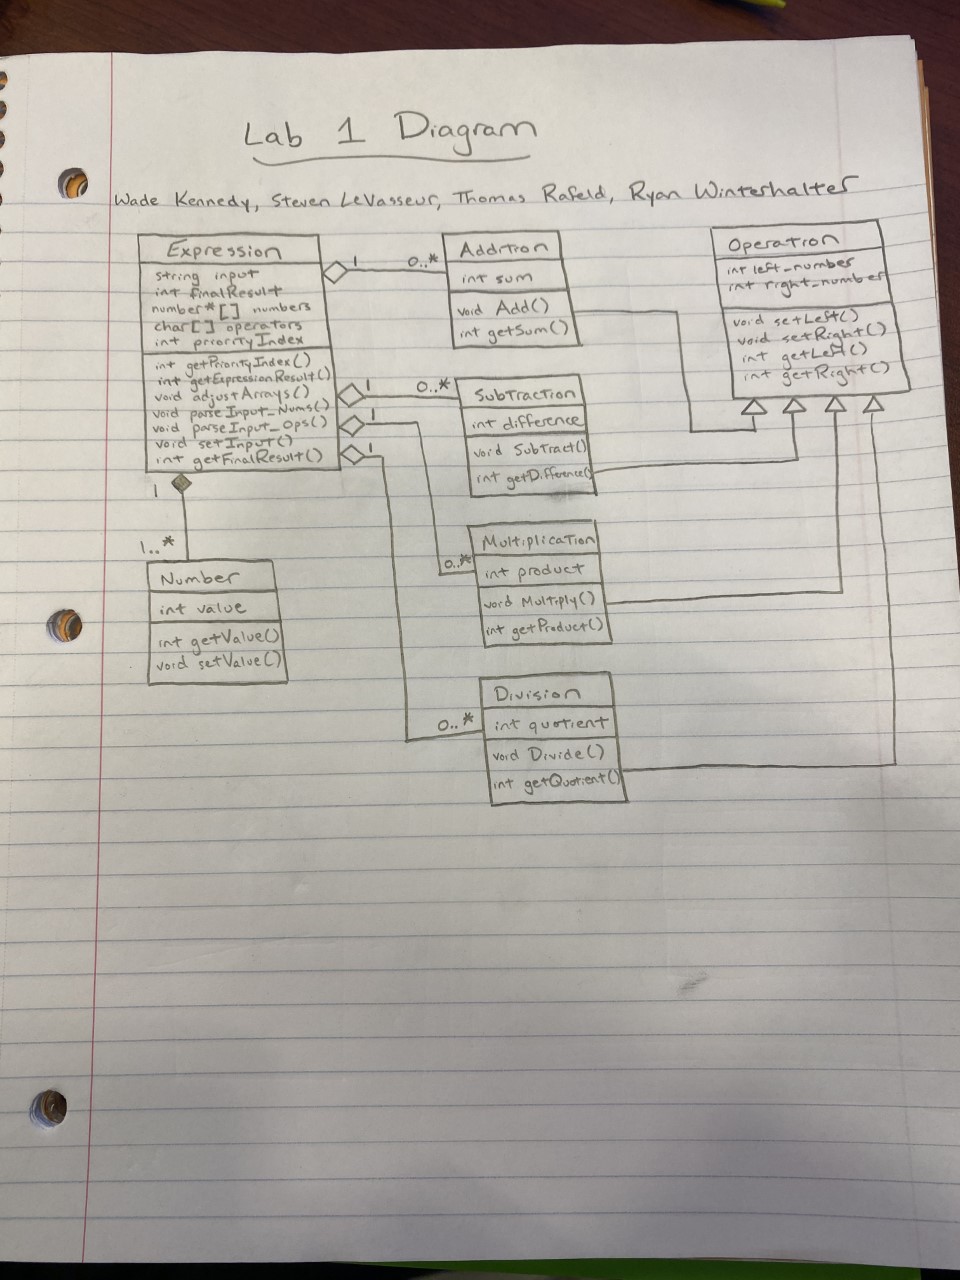 Lab 1 Diagram
Wade Kennedy, Steven LeVasseur, Thomas Rafeld, Ryan Winterhalter
Expression
string input
int finalResult
number*[] numbers
char[] operators
int priorityIndex
int getPriorityIndex()
int getExpressionResult()
void adjustArrays()
void parseInput_Nums()
void parseInput_Ops()
void setInput()
int getFinalResult()
1
0..*
1
0..*
1
0..*
1
0..*
1
1..*
Number
int value
int getValue()
void setValue()
Addition
int sum
void Add()
int getSum()
Subtraction
int difference
void Subtract()
int getDifference()
Multiplication
int product
void Multiply()
int getProduct()
Division
int quotient
void Divide()
int getQuotient()
Operation
int left_number
int right_number
void setLeft()
void setRight()
int getLeft()
int getRight()